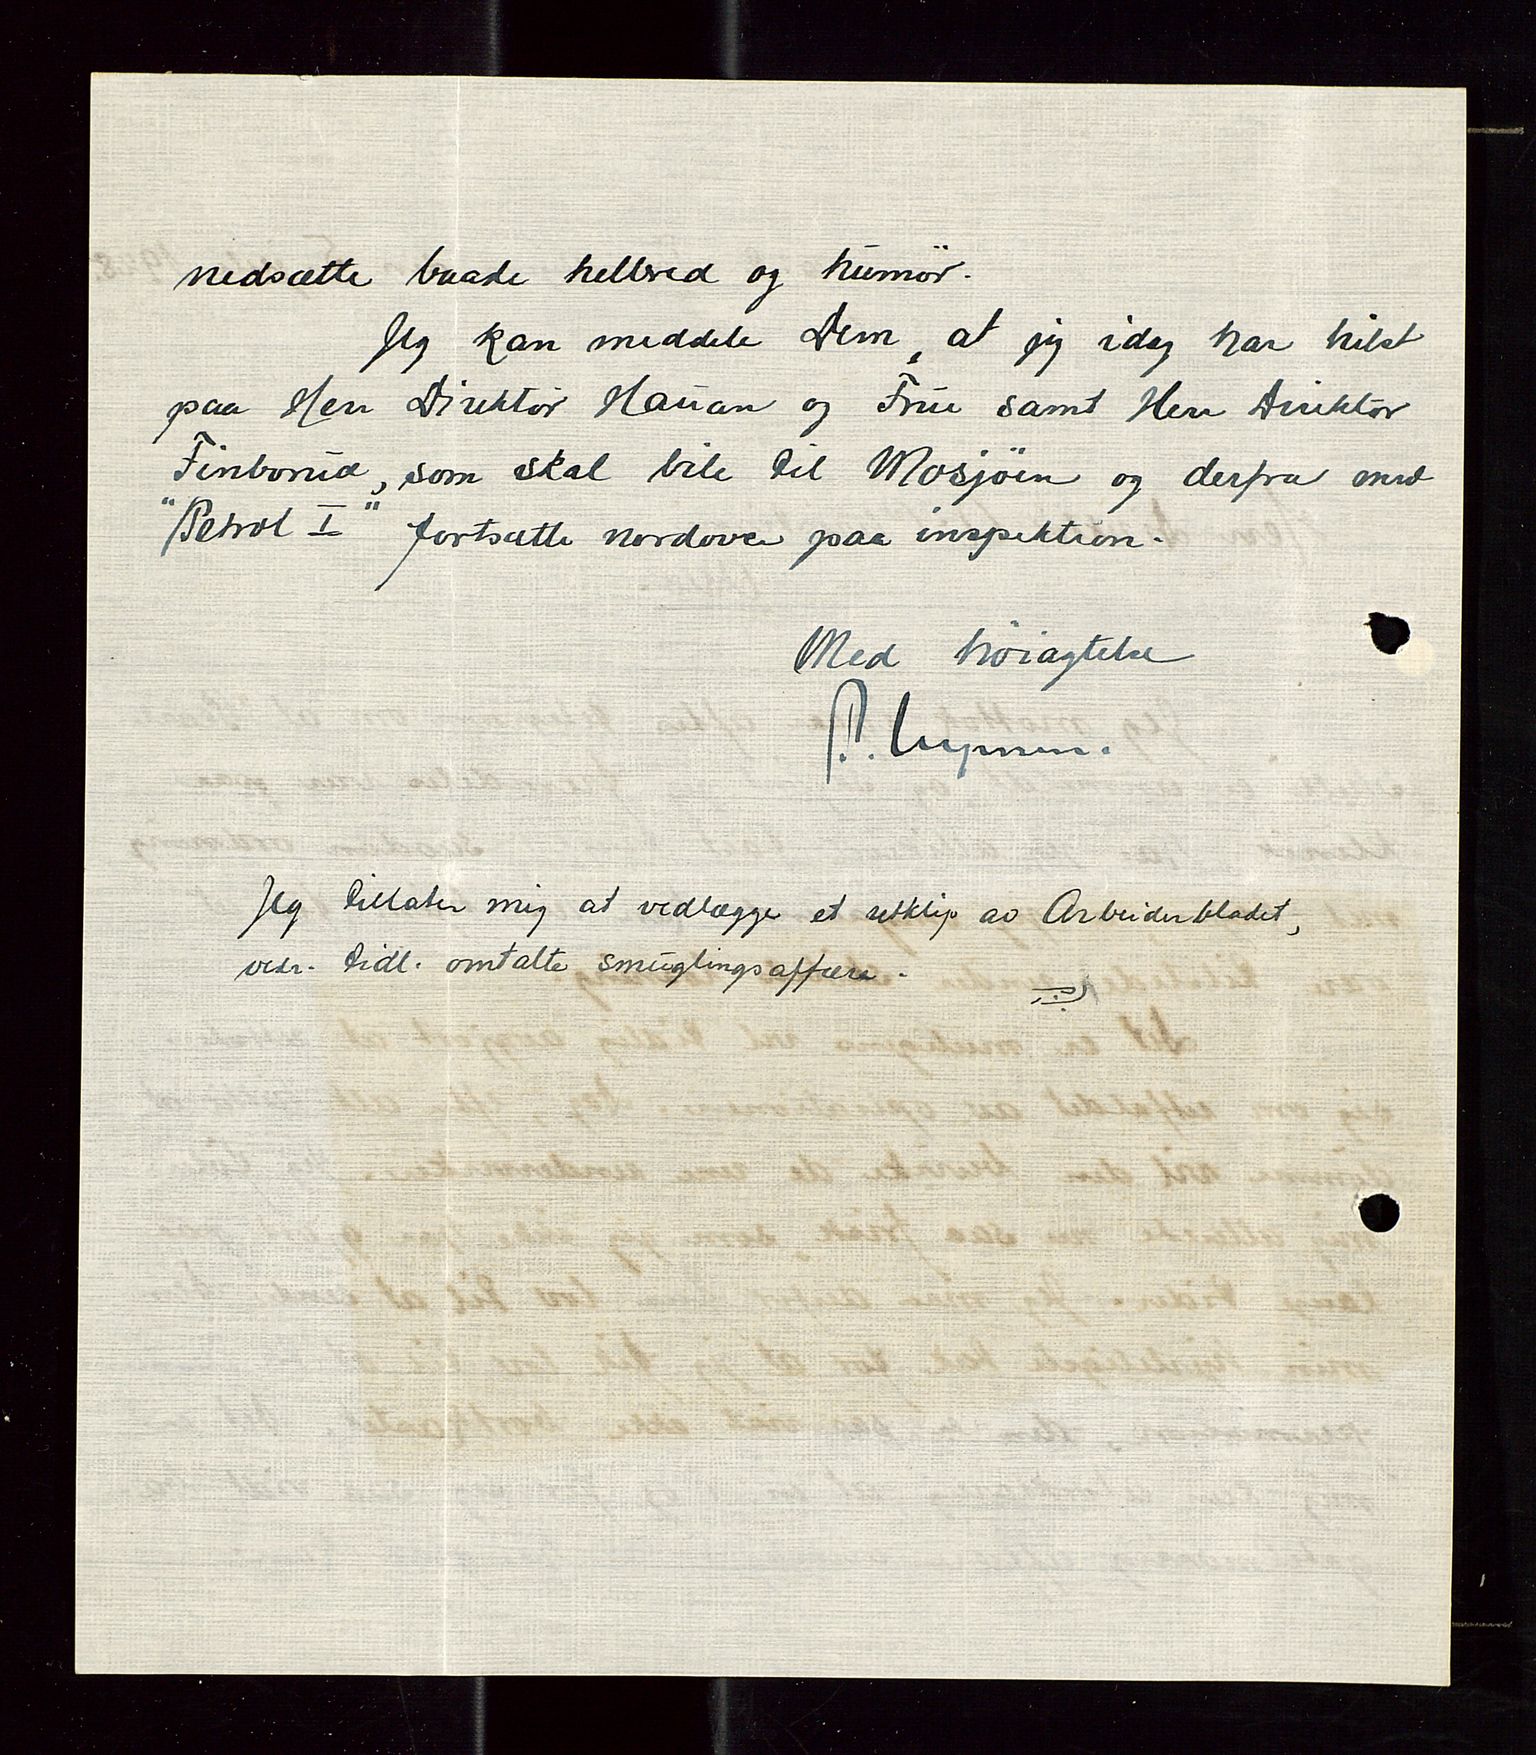 nedsætte baade helbred og humör.
Jeg kan meddele Dem, at jeg idag har hilst
paa Herr Direktör Hauan og Frue samt Herr Direktör
Finborud, som skal bile til Mosjöen og derfra med
"Petrol I" fortsætte nordover paa inspektion.
Med höiagtelse
P.
Jeg tillater mig at vedlægge et utklip av Arbeiderbladet,
vedr. tidl. omtalte smuglingsaffære.